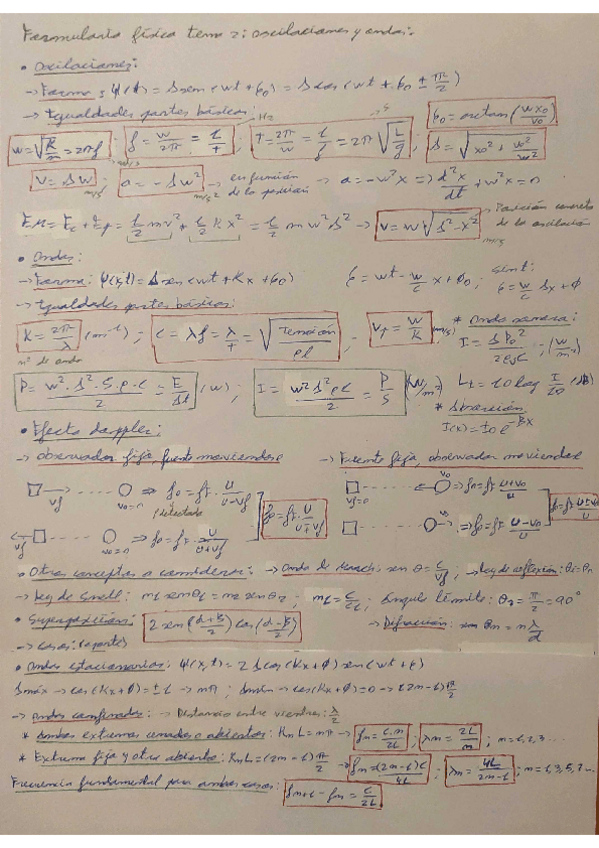 Formulario física tema 2: oscilaciones y ondas:
• Oscilaciones:
→ Forma: Ψ(t) = A sen(wt + φ₀) = A cos(wt + φ₀ ± π/2)
→ Igualdades partes básicas: φ₀ = arctan(w x₀/v₀)
w = √(k/m) = 2πf ; f = w/2π = 1/t Hz ; T = 2π/w = 1/f = 2π √(L/g) s ; A = √(x₀² + v₀²/w²)
V = A w m/s ; a = - A w² m/s² → en función de la posición → a = -w² x => d²x/dt + w² x = 0
EM = Ec + Ep = 1/2 m v² + 1/2 k x² = 1/2 m w² A² → v = w √(A² - x²) m/s → Posición concreta de la oscilación
• Ondas:
→ Forma: Ψ(x,t) = A sen(wt + Kx + φ₀) φ = wt - w/c x + φ₀ ;
→ Igualdades partes básicas: φ = w/c Δx + φ
K = 2π/λ (m⁻¹) ; c = λf = λ/T = √(Tensión/ρl) ; v_f = w/k (m/s) * Onda sonora:
nº de onda I = ΔP₀²/2ρ₀c ; (W/m²)
P = w²·A²·S·ρ·c/2 = E/Δt (W) ; I = w² A² ρ c/2 = P/S (W/m²) L_I = 10 log I/I₀ (dB)
* Absorción: I(x) = I₀ e^(-βx)
• Efecto doppler:
→ observador fijo, fuente moviendose → Fuente fija, observador moviendose
□→ vf ..... ○ v₀=0 => f₀ = ff · U/U-vf detectada □ vf=0 .... ←○ v₀ => f₀ = ff · U+v₀/U
f₀ = ff · U/U∓vf f₀ = ff U±v₀/U
←□ vf ..... ○ v₀=0 => f₀ = ff · U/U+vf □ .... ○→ v₀ => f₀ = ff · U-v₀/U
• Otros conceptos a considerar: → Onda de mach: sen θ = c/vf ; → Ley de reflexión: θi = θr
→ Ley de Snell: n₁ senθ₁ = n₂ senθ₂ ; Ángulo límite: θ₂ = π/2 = 90°
• Superposición: 2 sen(α+β/2) cos(α-β/2) → Difracción: sen θn = n λ/d
• Ondas estacionarias: Ψ(x,t) = 2 A cos(Kx + φ) sen(wt + φ)
Amáx → cos(Kx + φ) = ±1 → nπ ; Amín → cos(Kx + φ) = 0 → (2n-1) π/2
→ Ondas confinadas: → Distancia entre vientres: λ/2
* Ambos extremos cerrados o abiertos: Kn L = nπ → fn = c·n/2L ; λn = 2L/n ; n = 1, 2, 3 ...
* Extremo fijo y otro abierto: Kn L = (2n-1) π/2 → fn = (2n-1)c/4L ; λn = 4L/2n-1 ; n = 1, 3, 5, 7 ...
Frecuencia fundamental para ambos casos: fn+1 - fn = c/2L